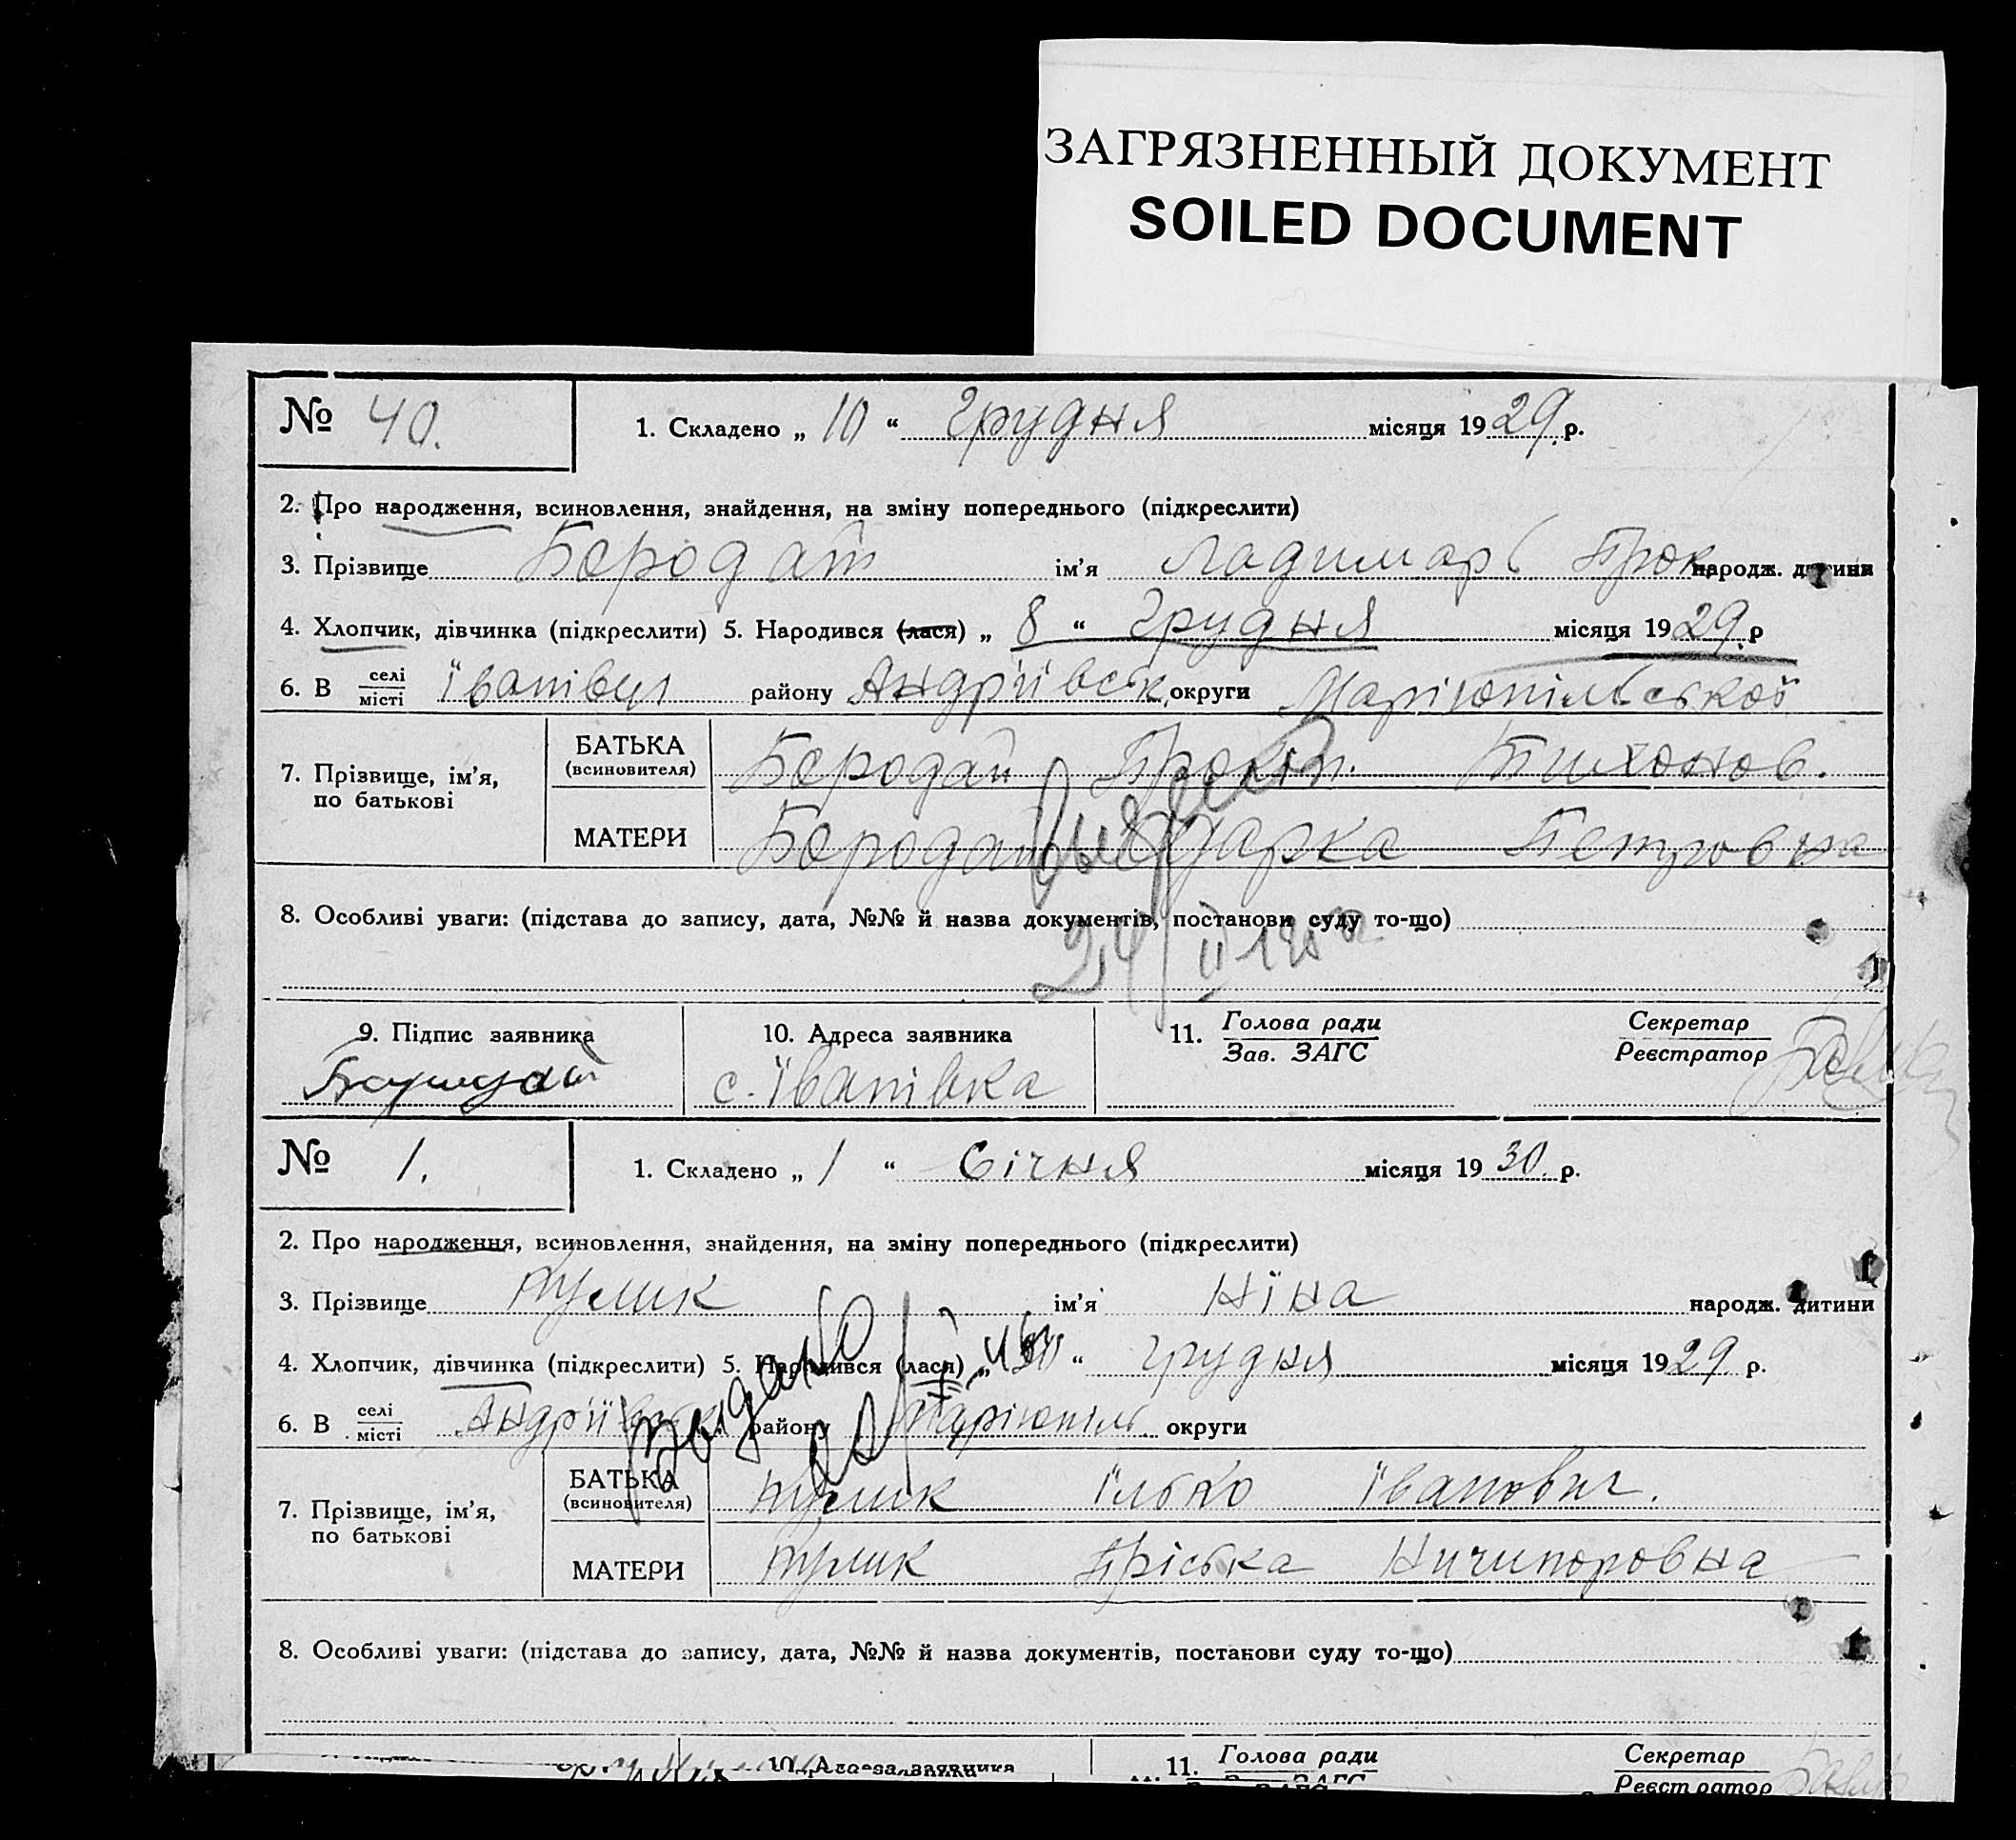 ЗАГРЯЗНЕННЫЙ ДОКУМЕНТ
SOILED DOCUMENT
№ 40.
1. Складено „ 10 “ грудня місяця 1929 р.
2. Про народження, всиновлення, знайдення, на зміну попереднього (підкреслити)
3. Прізвище Бородай ім'я Ладимарь Прок. народж. дитини
4. Хлопчик, дівчинка (підкреслити) 5. Народився (лася) „ 8 “ грудня місяця 1929 р
6. В селі/місті Іванівці району Андріївськ. округи Маріюпільської
7. Прізвище, ім'я, по батькові
БАТЬКА (всиновителя) Бородай Прокіп. Тихонов.
МАТЕРИ Бородай Одарка Петровна
8. Особливі уваги: (підстава до запису, дата, №№ й назва документів, постанови суду то-що)
9. Підпис заявника
10. Адреса заявника
11. Голова ради
Зав. ЗАГС
Секретар
Реєстратор
с. Їванівка
№ 1.
1. Складено „ 1 “ Січня місяця 1930 р.
2. Про народження, всиновлення, знайдення, на зміну попереднього (підкреслити)
3. Прізвище ім'я Ніна народж. дитини
4. Хлопчик, дівчинка (підкреслити) 5. Народився (лася) „ “ грудня місяця 1929 р.
6. В селі/місті району Маріюпіль. округи
7. Прізвище, ім'я, по батькові
БАТЬКА (всиновителя) Їлько Їванович.
МАТЕРИ Пріська Ничипоровна
8. Особливі уваги: (підстава до запису, дата, №№ й назва документів, постанови суду то-що)
10. Адреса заявника
11. Голова ради
Секретар
Реєстратор